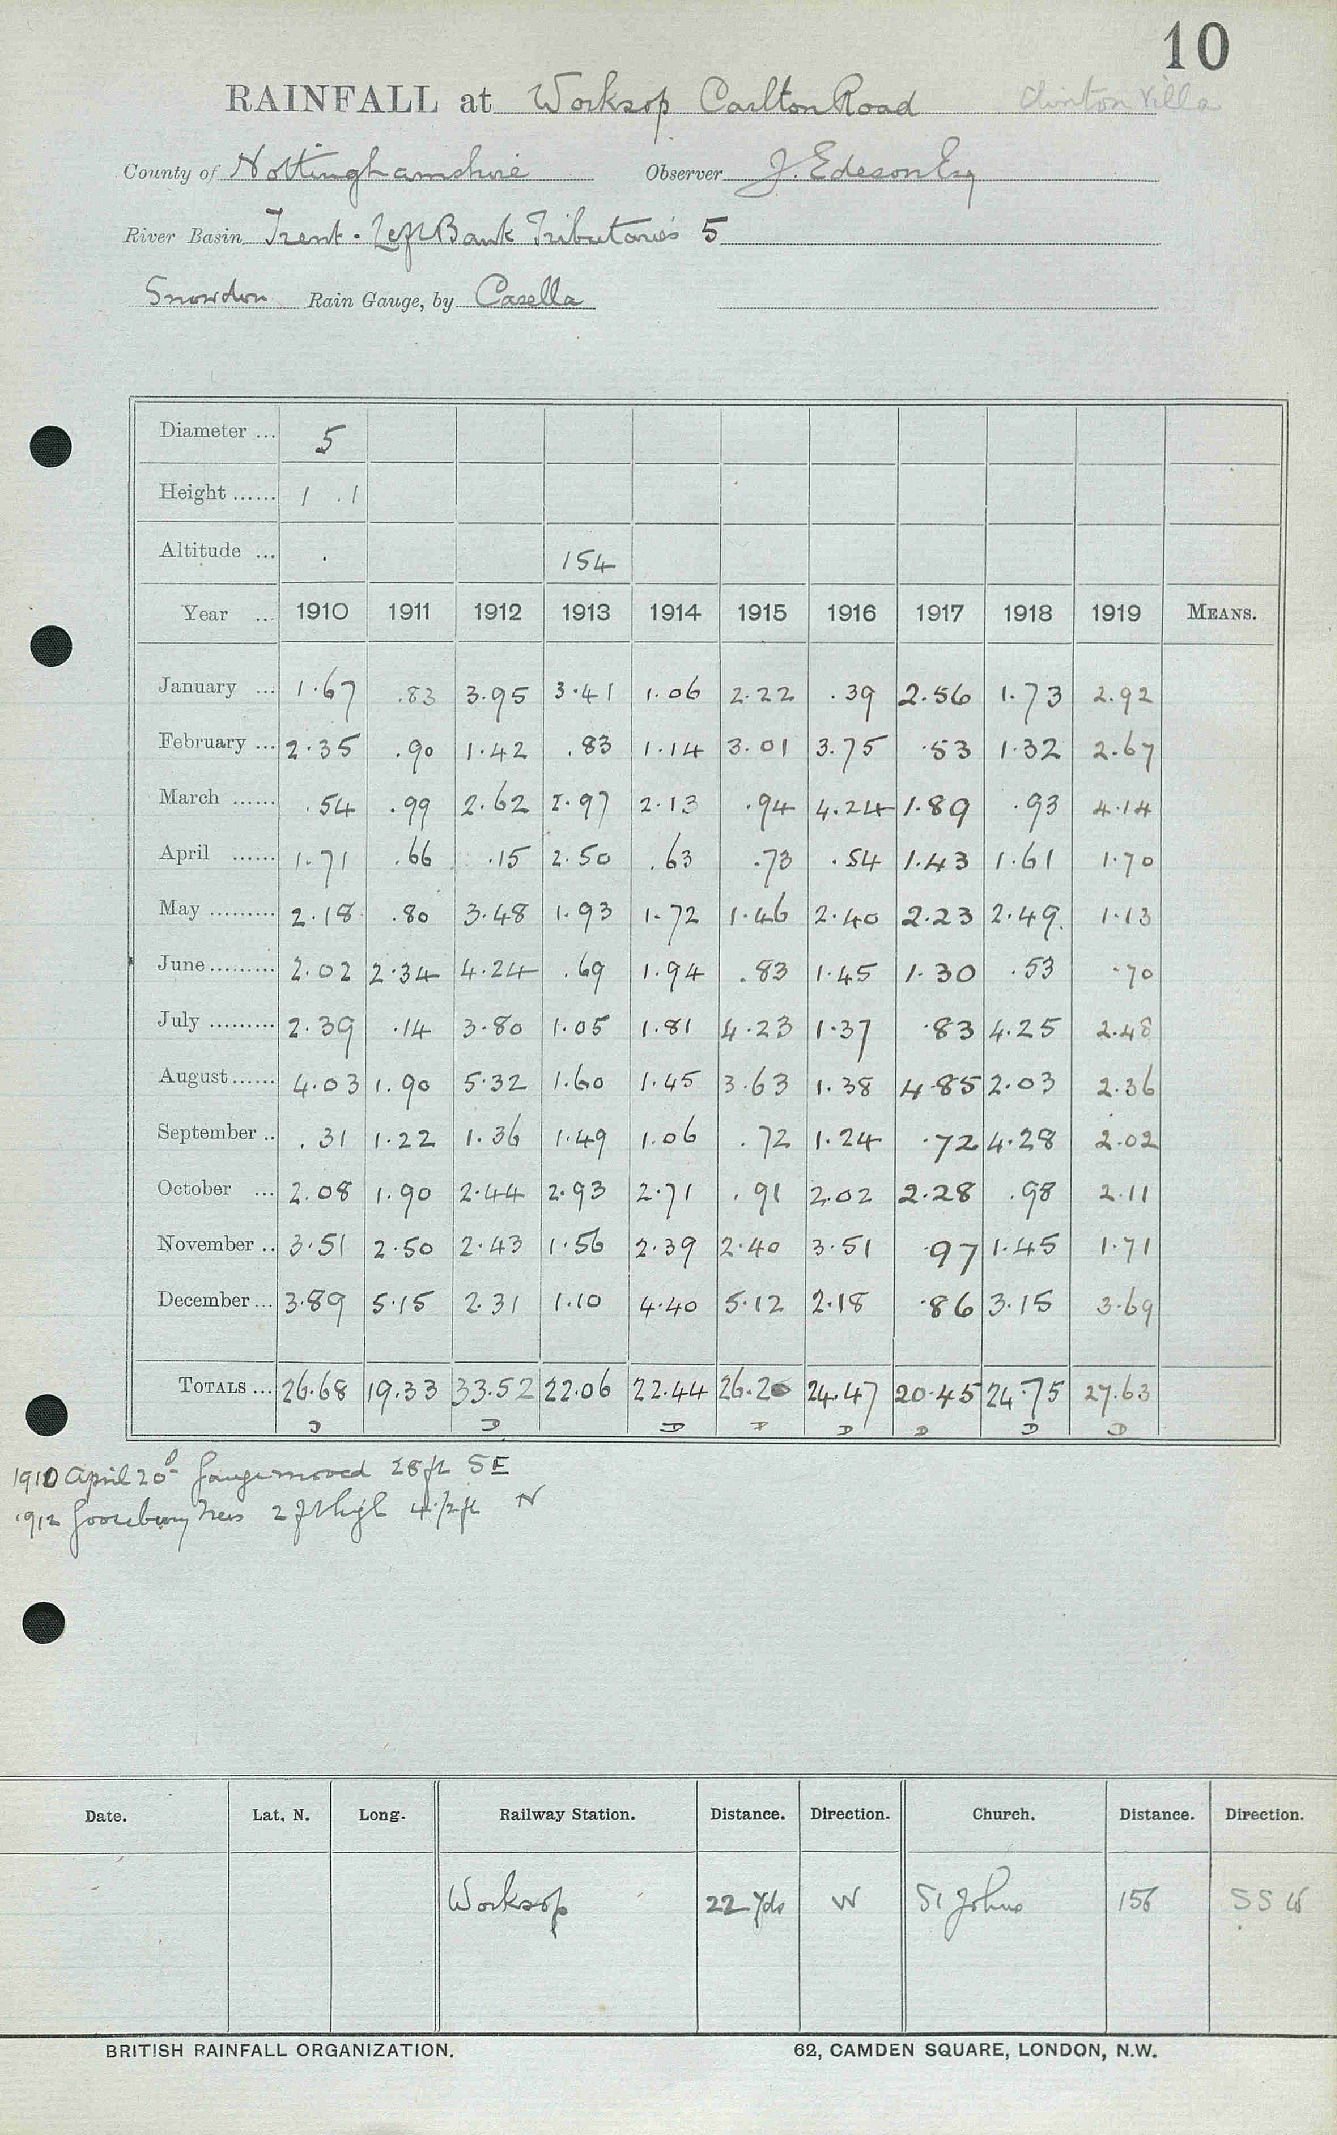 10
RAINFALL at Worksop Carlton Road Clinton Villa
County of Nottinghamshire Observer J. Edeson Esq
River Basin Trent. Left Bank Tributaries 5
Snowdon Rain Gauge, by Casella
Diameter ... 5
Height ...... 1 .1
Altitude ... . 154
Year ... 1910 1911 1912 1913 1914 1915 1916 1917 1918 1919 MEANS.
January ... 1.67 .83 3.95 3.41 1.06 2.22 .39 2.56 1.73 2.92
February ... 2.35 .90 1.42 .83 1.14 3.01 3.75 .53 1.32 2.67
March ...... .54 .99 2.62 2.97 2.13 .94 4.24 1.89 .93 4.14
April ...... 1.71 .66 .15 2.50 .63 .73 .54 1.43 1.61 1.70
May ......... 2.18 .80 3.48 1.93 1.72 1.46 2.40 2.23 2.49 1.13
June ......... 2.02 2.34 4.24 .69 1.94 .83 1.45 1.30 .53 .70
July ......... 2.39 .14 3.80 1.05 1.81 4.23 1.37 .83 4.25 2.48
August ...... 4.03 1.90 5.32 1.60 1.45 3.63 1.38 4.85 2.03 2.36
September .. .31 1.22 1.36 1.49 1.06 .72 1.24 .72 4.28 2.02
October ... 2.08 1.90 2.44 2.93 2.71 .91 2.02 2.28 .98 2.11
November .. 3.51 2.50 2.43 1.56 2.39 2.40 3.51 .97 1.45 1.71
December ... 3.89 5.15 2.31 1.10 4.40 5.12 2.18 .86 3.15 3.69
TOTALS ... 26.68 19.33 33.52 22.06 22.44 26.20 24.47 20.45 24.75 27.63
D D D D D D D D
1910 April 20 Gauge moved 28 ft SE
1912 Gooseberry trees 2 ft high 4½ ft N
Date. Lat. N. Long. Railway Station. Distance. Direction. Church. Distance. Direction.
Worksop 22 yds W St Johns 156 SSW
BRITISH RAINFALL ORGANIZATION. 62, CAMDEN SQUARE, LONDON, N.W.